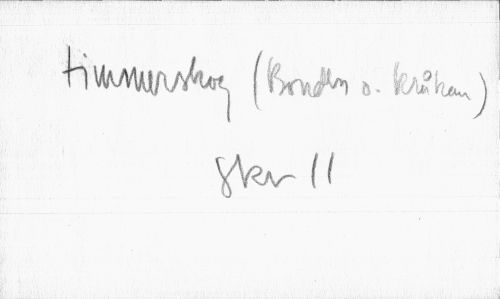 timmerskog (Bonden o. kråkan)
Skr 11